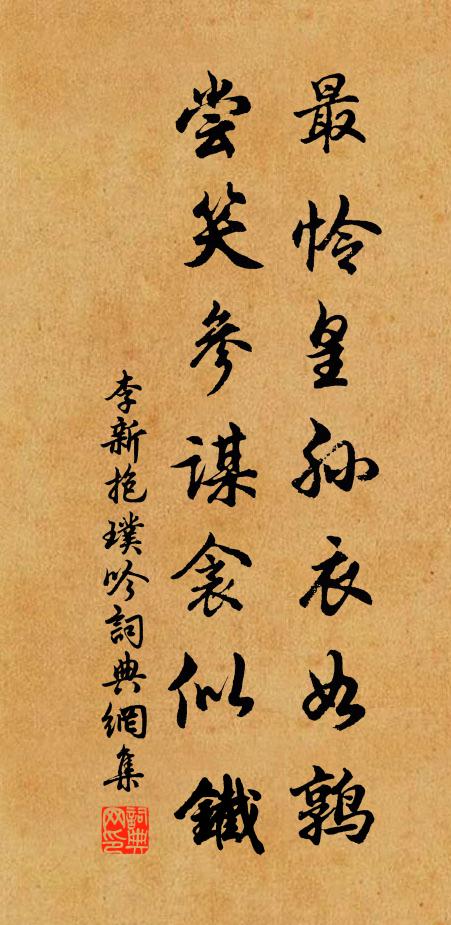 最怜皇孙衣如鹑
尝笑参谋衾似鐵
李新抱璞吟詞典網集
詞典網印